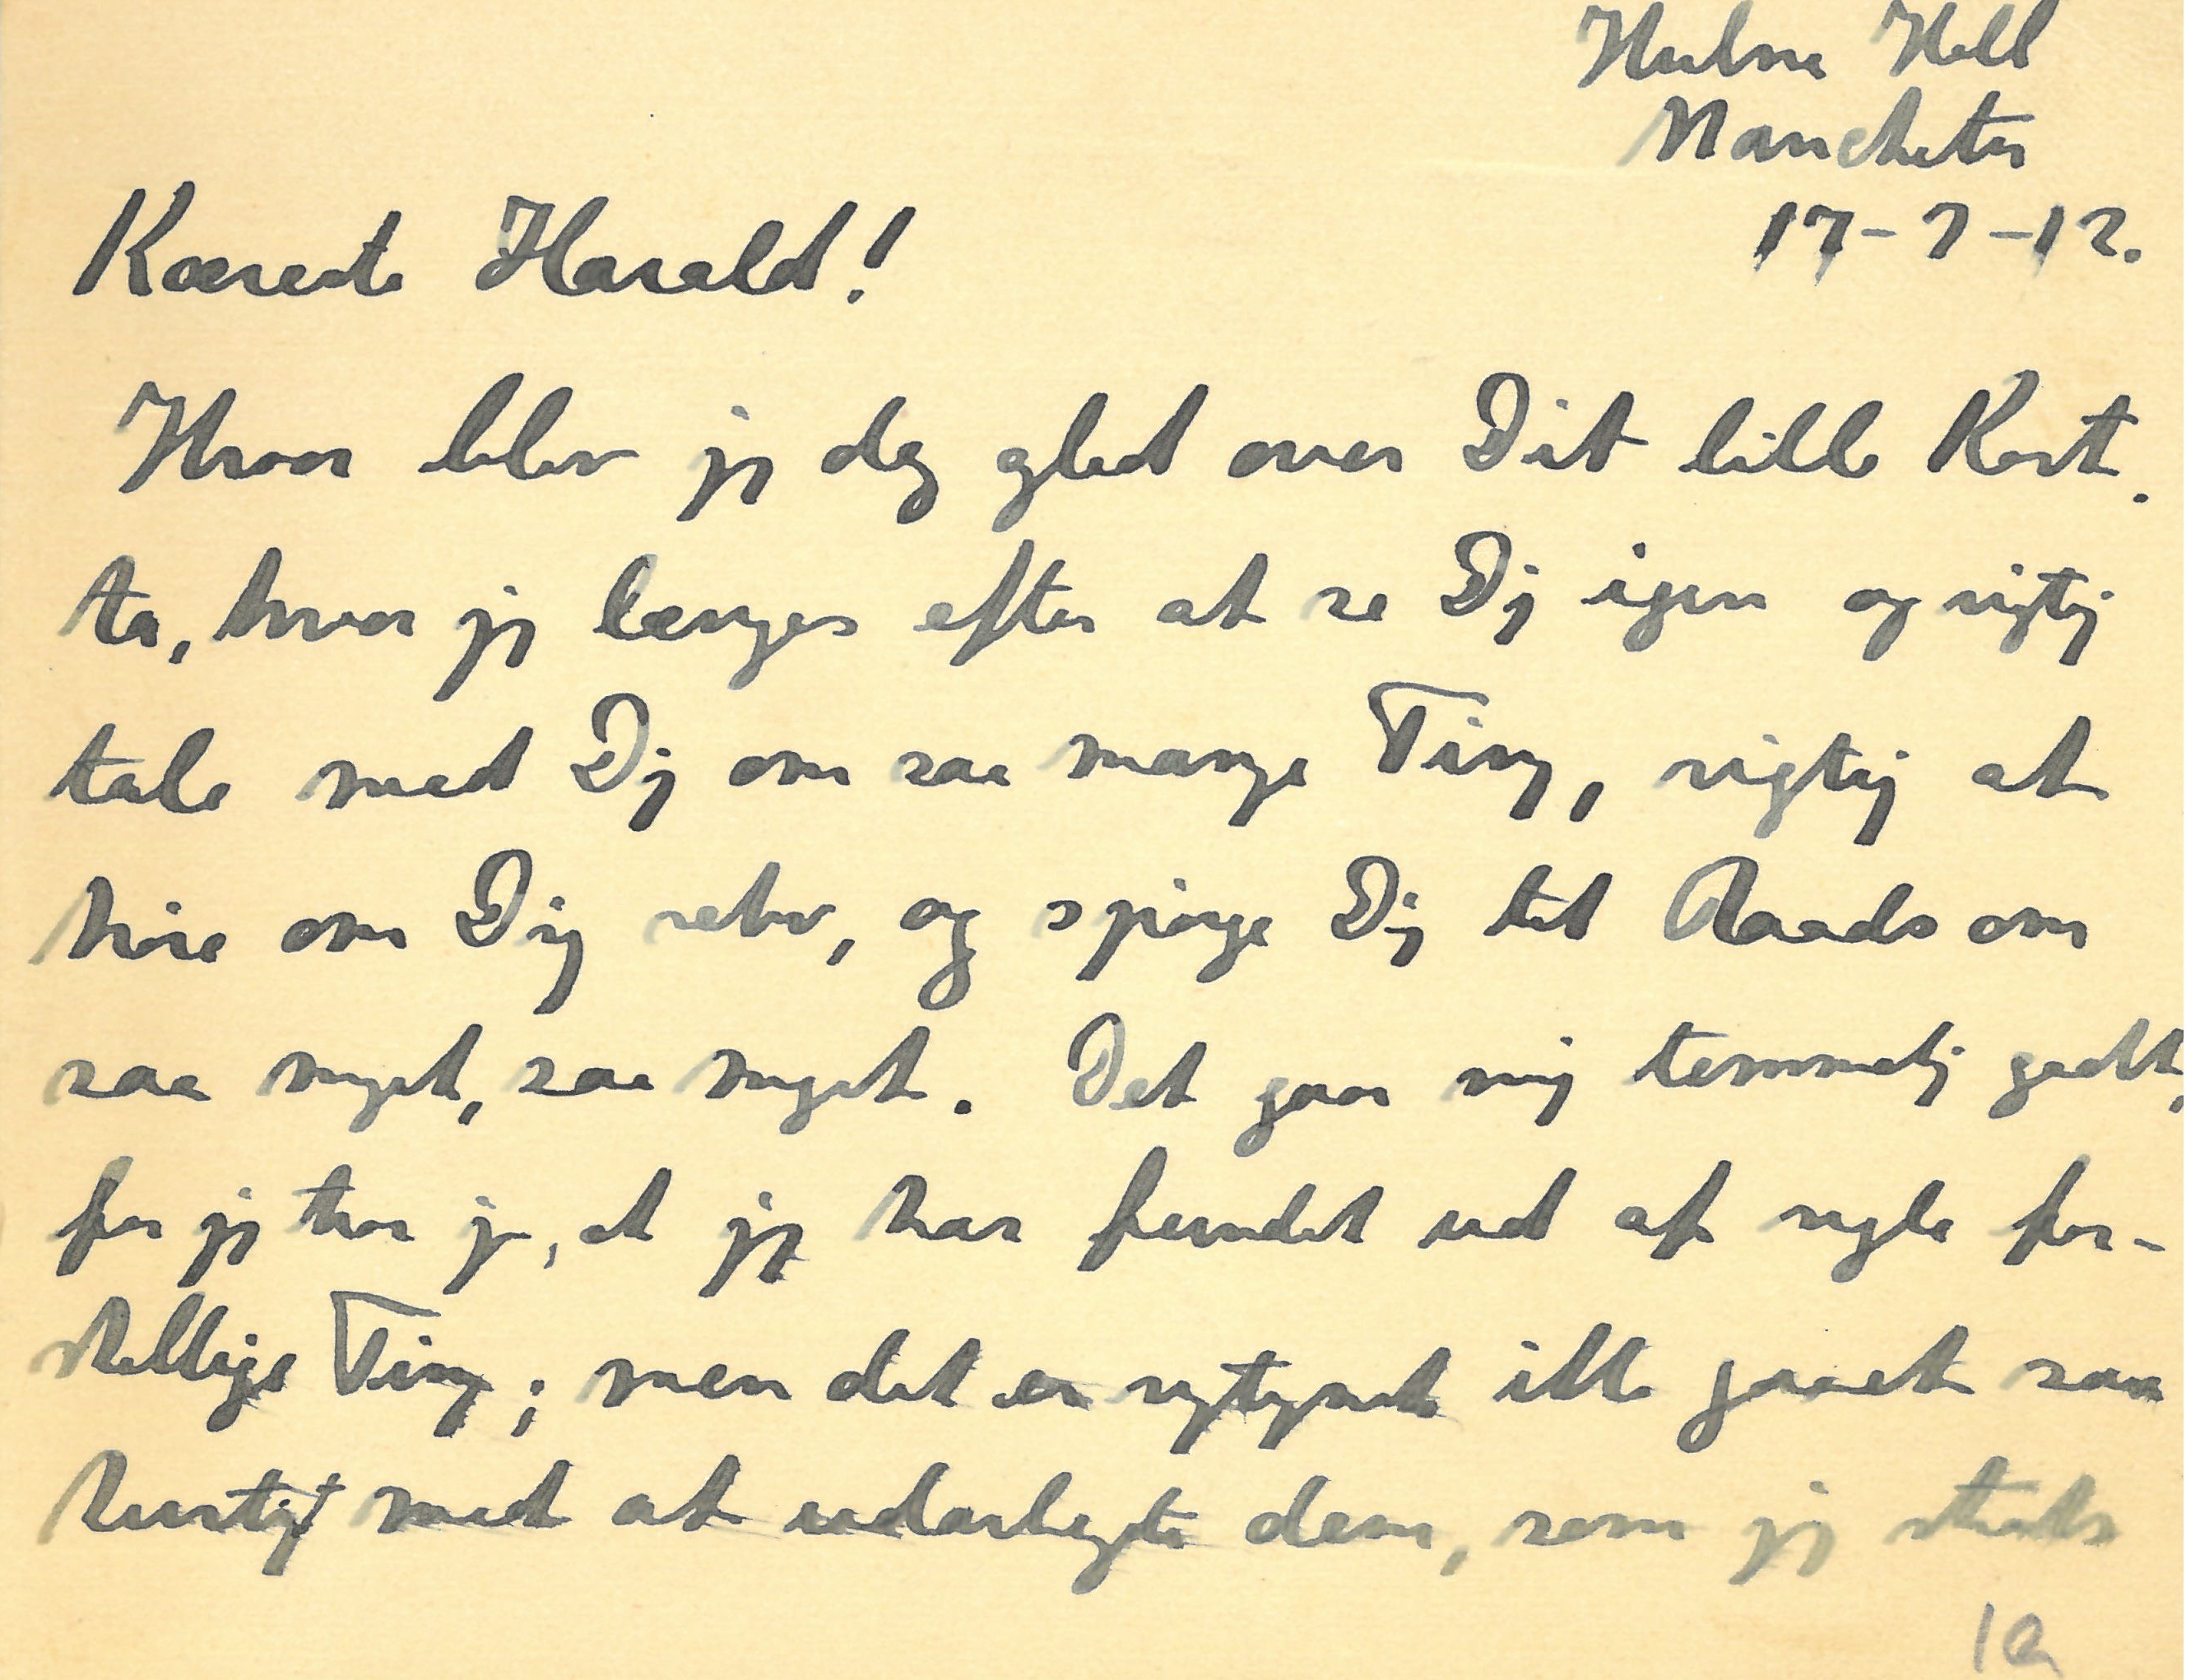 Hulme Hall
Manchester
17-7-12.
Kæreste Harald!
Hvor blev jeg dog glad over Dit lille Kort.
Ja, hvor jeg længes efter at se Dig igen og rigtig
tale med Dig om saa mange Ting, rigtig at
høre om Dig selv, og spørge Dig til Raads om
saa meget, saa meget. Det gaar mig temmelig godt,
for jeg tror jo, at jeg har fundet ud af nogle for-
skellige Ting; men det er rigtignok ikke gaaet saa
hurtigt med at udarbejde dem, som jeg straks
1a